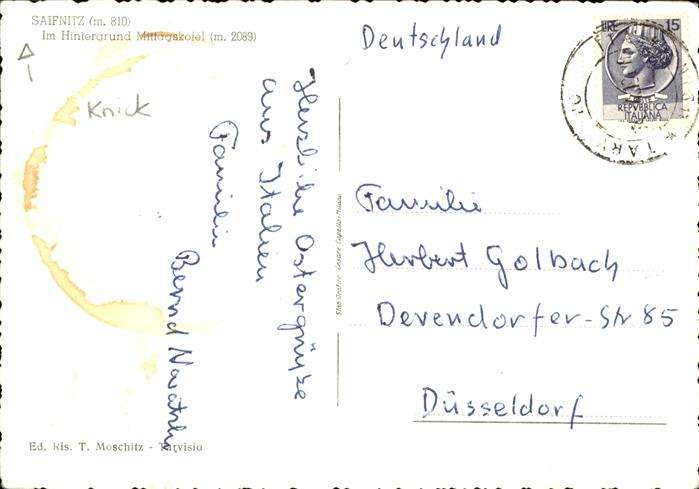 SAIFNITZ (m. 810)
Im Hintergrund Mittagskofel (m. 2089)
Knick
Herzliche Ostergrüße
aus Italien
Familie
Bernd
Ed. Ris. T. Moschitz - Tarvisio
Deutschland
LIRE 15
REPVBBLICA
ITALIANA
Familie
Herbert Golbach
Devendorfer-Str 85
Düsseldorf